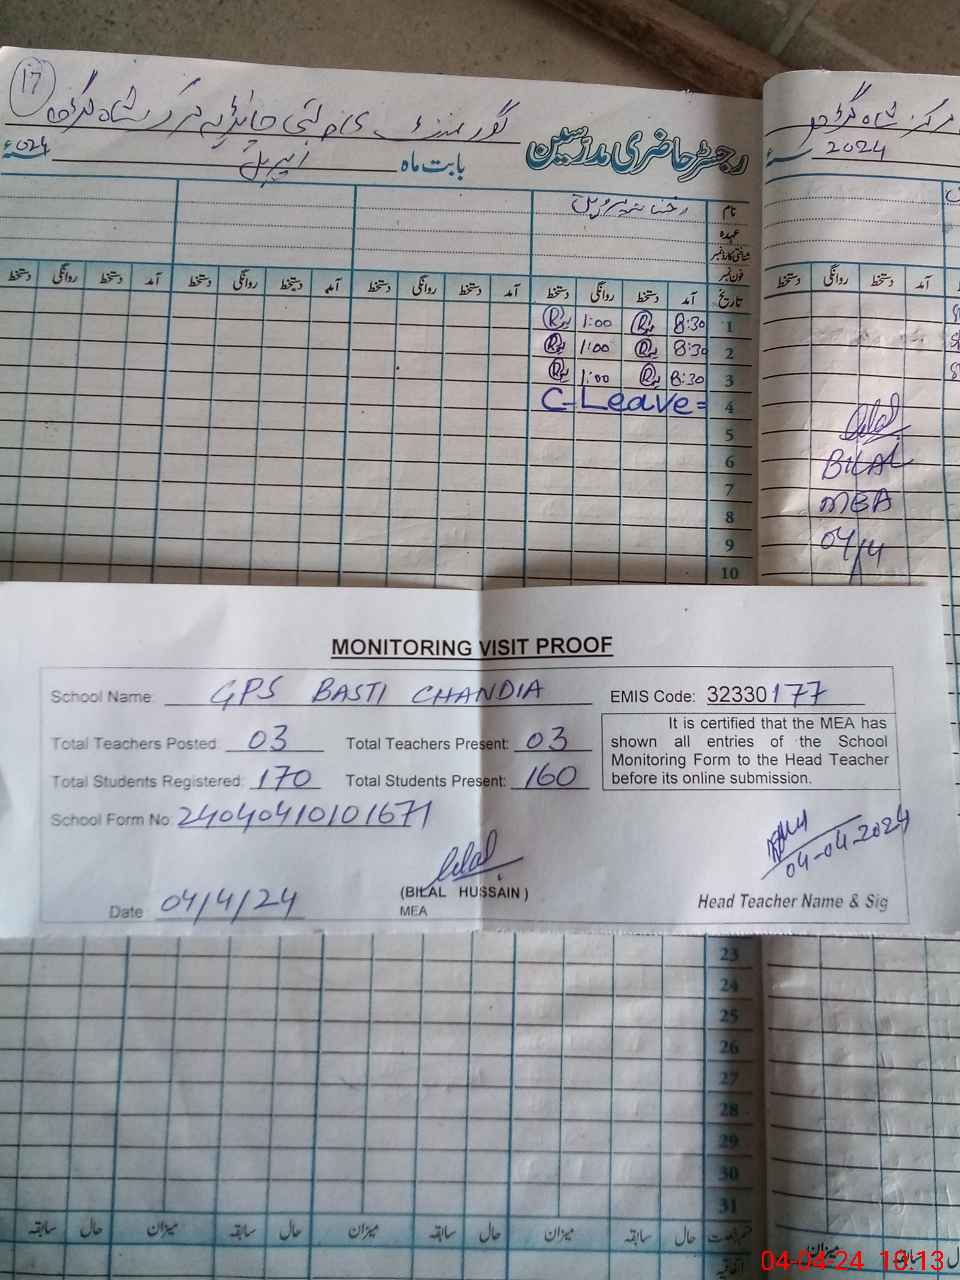 17
گورنمنٹ بستی چانڈیہ مرکز شاہ گڑھ
رجسٹر حاضری مدرسین
بابت ماہ اپریل 2024ء
نام
عہدہ
شناختی کارڈ نمبر
فون نمبر
تاریخ آمد دستخط روانگی دستخط آمد دستخط روانگی دستخط آمد دستخط روانگی دستخط آمد دستخط روانگی دستخط
1 8:30 1:00
2 8:30 1:00
3 8:30 1:00
4 C-Leave=
5
6
7
8
9
10
مرکز شاہ گڑھ
2024ء
دستخط روانگی دستخط
Bilal
BILAL
MEA
04/4
MONITORING VISIT PROOF
School Name: GPS BASTI CHANDIA EMIS Code: 32330177
Total Teachers Posted: 03 Total Teachers Present: 03
Total Students Registered: 170 Total Students Present: 160
School Form No: 24040410101671
It is certified that the MEA has
shown all entries of the School
Monitoring Form to the Head Teacher
before its online submission.
Bilal
(BILAL HUSSAIN)
MEA
Date 04/4/24
04-04-2024
Head Teacher Name & Sig
23
24
25
26
27
28
29
30
31
حال سابقہ میزان حال سابقہ میزان حال سابقہ میزان حال سابقہ
میزان
04-04-24 10:13